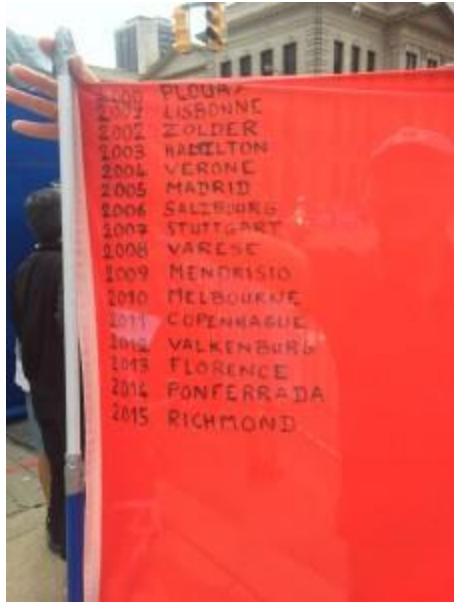 2000 PLOUAY
2001 LISBONNE
2002 ZOLDER
2003 HAMILTON
2004 VERONE
2005 MADRID
2006 SALZBOURG
2007 STUTTGART
2008 VARESE
2009 MENDRISIO
2010 MELBOURNE
2011 COPENHAGUE
2012 VALKENBURG
2013 FLORENCE
2014 PONFERRADA
2015 RICHMOND